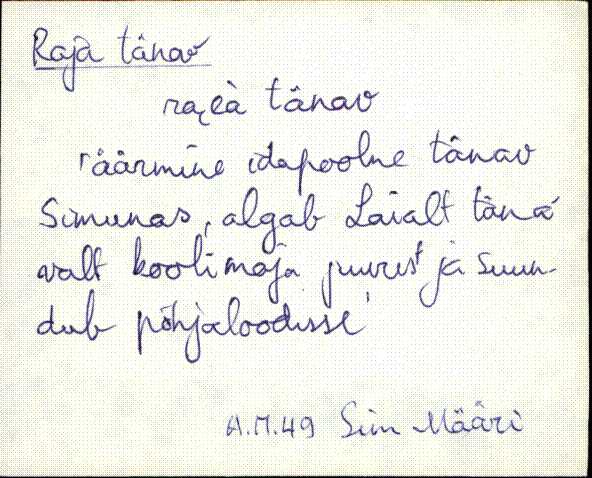 Raja tänav
raea tänav
"Äärmine idapoolne tänav
Simunas, algab Laialt täna-
valt koolimaja juurest ja suun-
dub põhjaloodisse"
A.M.49 Sim Määri